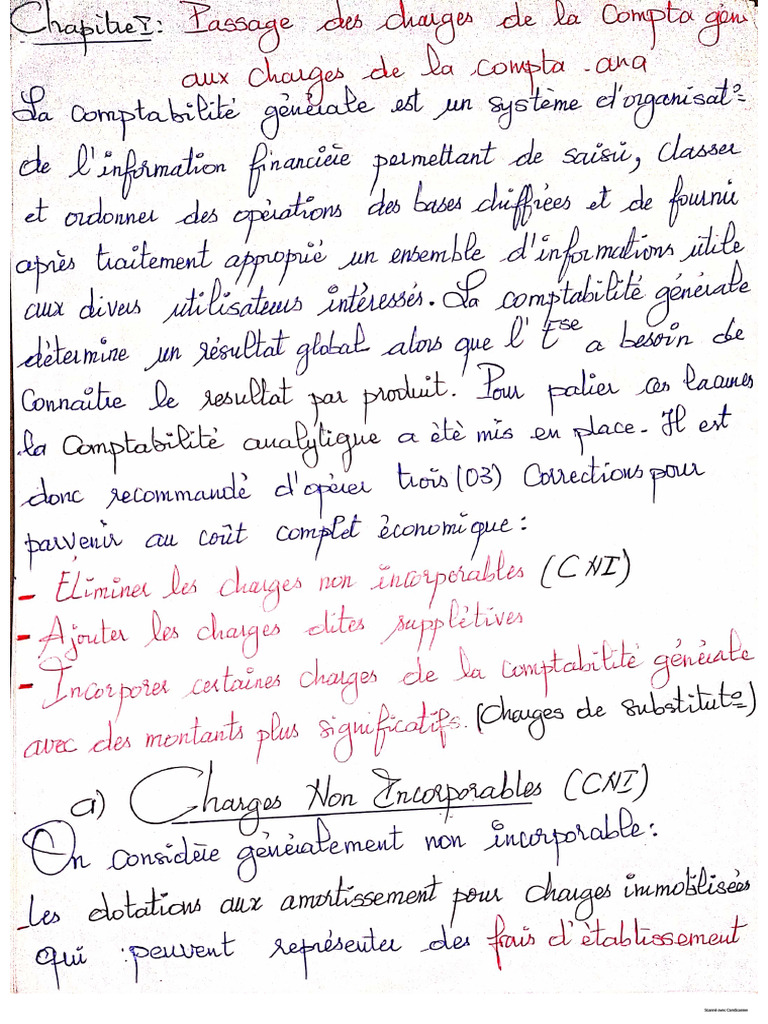 Chapitre I: Passage des charges de la Compta gén
aux charges de la compta .ana
La comptabilité générale est un système d'organisat°
de l'information financière permettant de saisir, Classer
et ordonner des opérations des bases chiffrées et de fournir
après traitement approprié un ensemble d'informations utile
aux divers utilisateurs intéressés. La comptabilité générale
détermine un résultat global alors que l' Ese a besoin de
Connaître le resultat par produit. Pour palier ces lacunes
la Comptabilité analytique a été mis en place. Il est
donc recommandé d'opérer trois (03) Corrections pour
parvenir au coût complet économique :
- Eliminer les charges non incorporables (CNI)
- Ajouter les charges dites supplétives
- Incorporer certaines charges de la comptabilité générale
avec des montants plus significatifs. (Charges de substitut°)
a) Charges Non Incorporables (CNI)
On considère généralement non incorporable :
-les dotations aux amortissement pour charges immobilisées
qui peuvent représenter des frais d'établissement
Scanné avec CamScanner